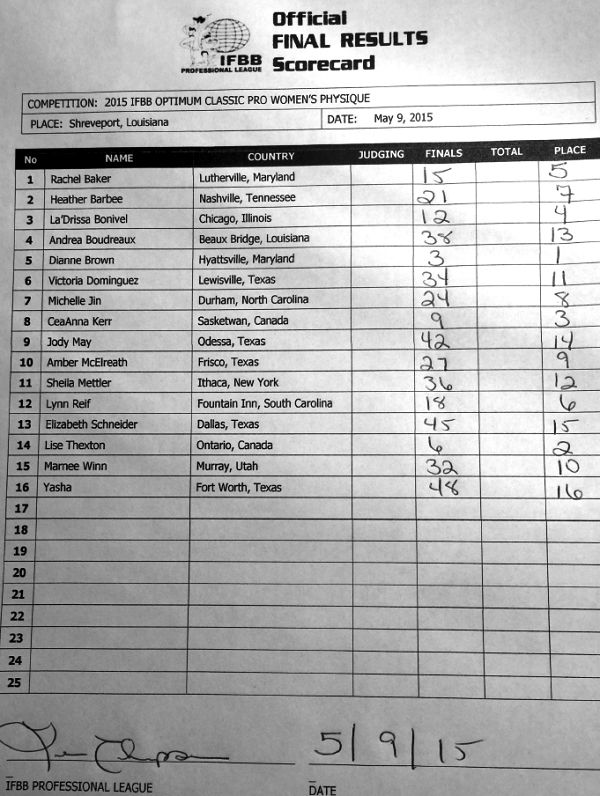 Official
FINAL RESULTS
Scorecard
IFBB
PROFESSIONAL LEAGUE
COMPETITION: 2015 IFBB OPTIMUM CLASSIC PRO WOMEN'S PHYSIQUE
PLACE: Shreveport, Louisiana DATE: May 9, 2015
No NAME COUNTRY JUDGING FINALS TOTAL PLACE
1 Rachel Baker Lutherville, Maryland 15 5
2 Heather Barbee Nashville, Tennessee 21 7
3 La'Drissa Bonivel Chicago, Illinois 12 4
4 Andrea Boudreaux Beaux Bridge, Louisiana 38 13
5 Dianne Brown Hyattsville, Maryland 3 1
6 Victoria Dominguez Lewisville, Texas 34 11
7 Michelle Jin Durham, North Carolina 24 8
8 CeaAnna Kerr Sasketwan, Canada 9 3
9 Jody May Odessa, Texas 42 14
10 Amber McElreath Frisco, Texas 27 9
11 Sheila Mettler Ithaca, New York 36 12
12 Lynn Reif Fountain Inn, South Carolina 18 6
13 Elizabeth Schneider Dallas, Texas 45 15
14 Lise Thexton Ontario, Canada 6 2
15 Marnee Winn Murray, Utah 32 10
16 Yasha Fort Worth, Texas 48 16
17
18
19
20
21
22
23
24
25
5/9/15
IFBB PROFESSIONAL LEAGUE DATE